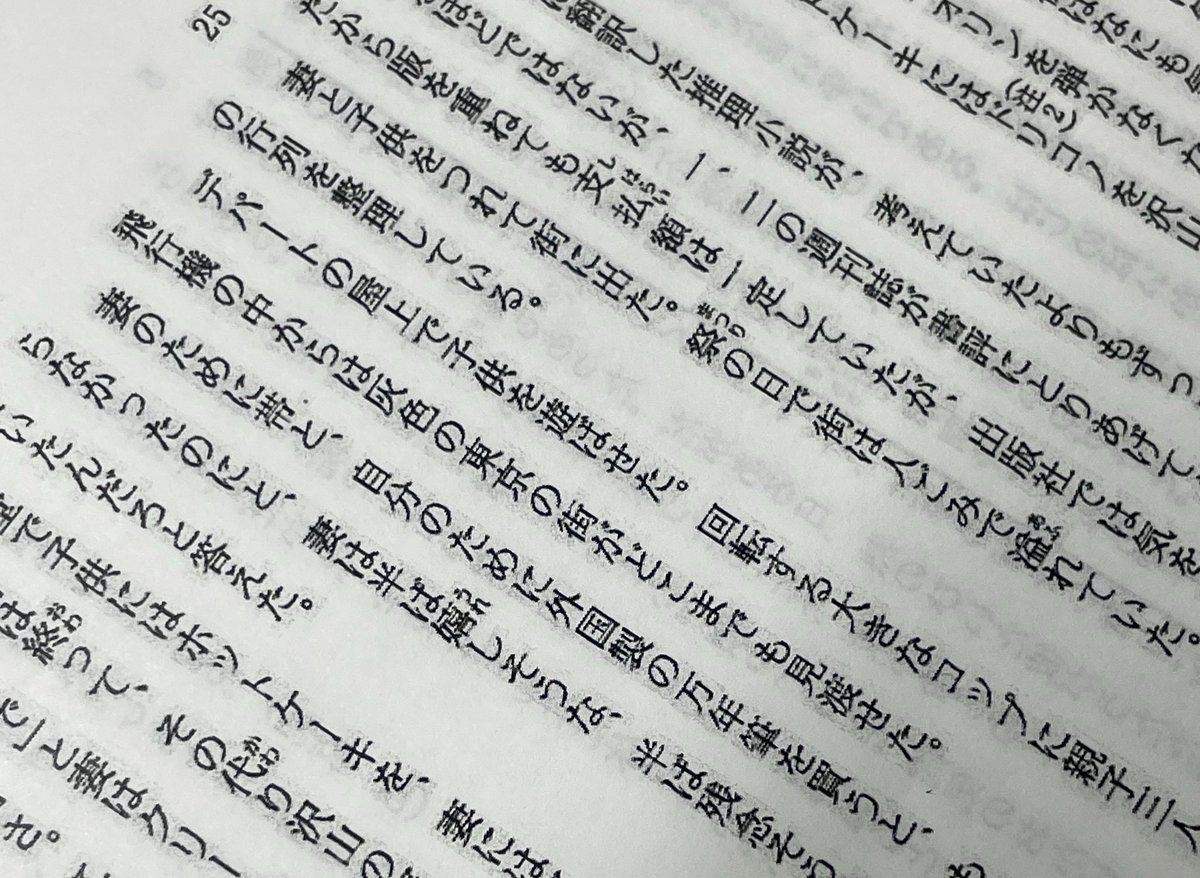 はなにも
オリンを弾かなくな
(注2)
ケーキにはドリコノを沢山
に翻訳した推理小説が、考えていたよりもずっ
ほどではないが、一、二の週刊誌が書評にとりあげて
だから版を重ねても支払額は一定していたが、出版社では気を
妻と子供をつれて街に出た。祭の日で街は人ごみで溢れていた。
の行列を整理している。
デパートの屋上で子供を遊ばせた。回転する大きなコップに親子三人
飛行機の中からは灰色の東京の街がどこまでも見渡せた。
妻のために帯と、自分のために外国製の万年筆を買うと、も
らなかったのにと、妻は半ば嬉しそうな、半ば残念そう
いたんだろと答えた。
堂で子供にはホットケーキを、妻には
は終って、その代り沢山の
で」と妻はクリー
さ。
25